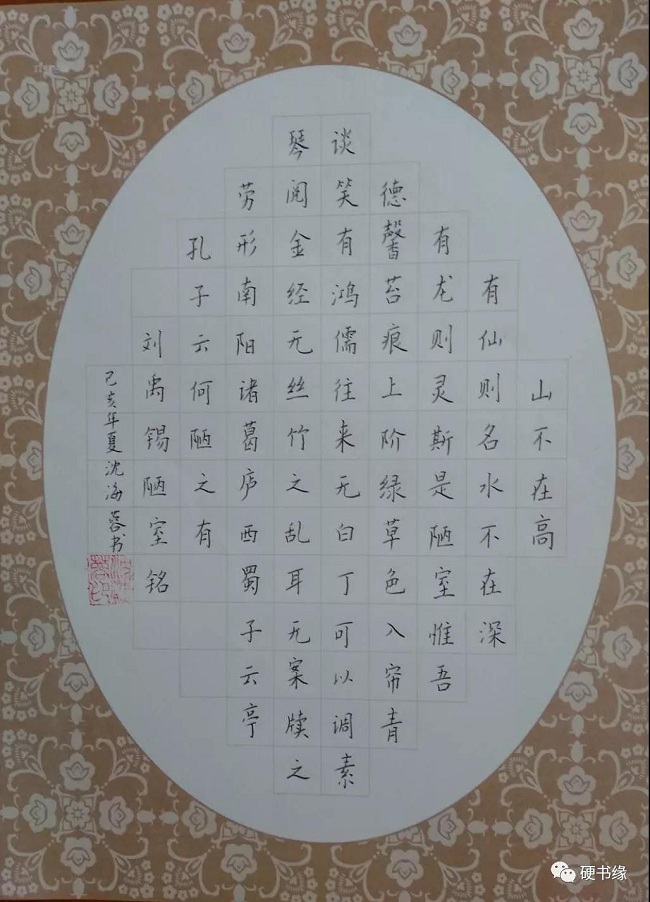 山不在高
有仙则名水不在深
有龙则灵斯是陋室惟吾
德馨苔痕上阶绿草色入帘青
谈笑有鸿儒往来无白丁可以调素
琴阅金经无丝竹之乱耳无案牍之
劳形南阳诸葛庐西蜀子云亭
孔子云何陋之有
刘禹锡陋室铭
己亥年夏沈海蓉书
硬书缘